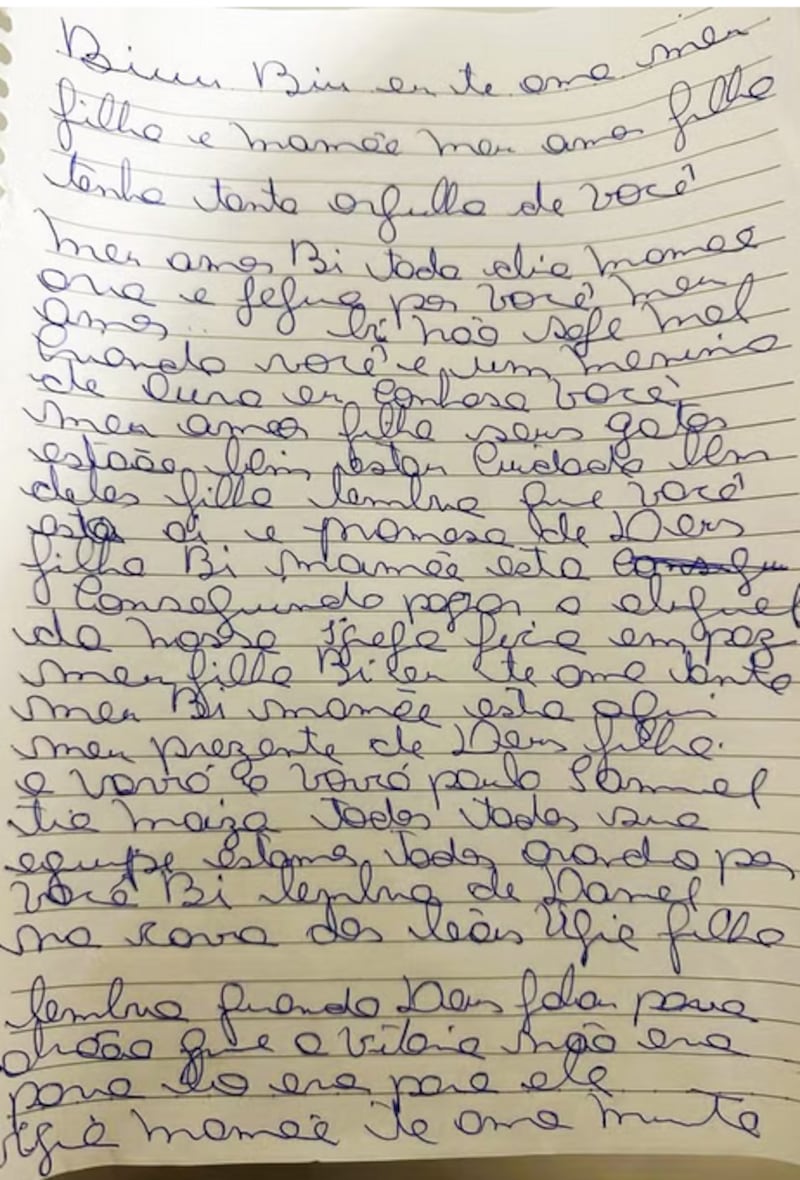 Biuu Biu eu te amo meu
filho e mamãe meu amor filho
tenho tanto orgulho de você
meu amor Bi todo dia mamãe
ora e jejua por você meu
amor.. Bi não sofe mal
Quando você e um menino
de Ouro eu conheso você
meu amor filho seus gatos
estão bem estou Cuidado bem
deles filho lembra que você
esta ai e promesa de Deus
filho Bi mamãe esta consegu
Conseguindo pagar o aluguel
da nossa Igreja fica em paz
meu filho Bi eu te amo tanto
meu Bi mamãe esta aqui
meu prezente de Deus filho.
e vovó e o vovó paulo Samuel
tia maiza todos todos sua
equipe estamos todos orando por
você Bi lembra de Daniel
na cova dos leões filho
lembra quando Deus falou para
que a vitoria não era
para era para ele
mamãe te amo muito